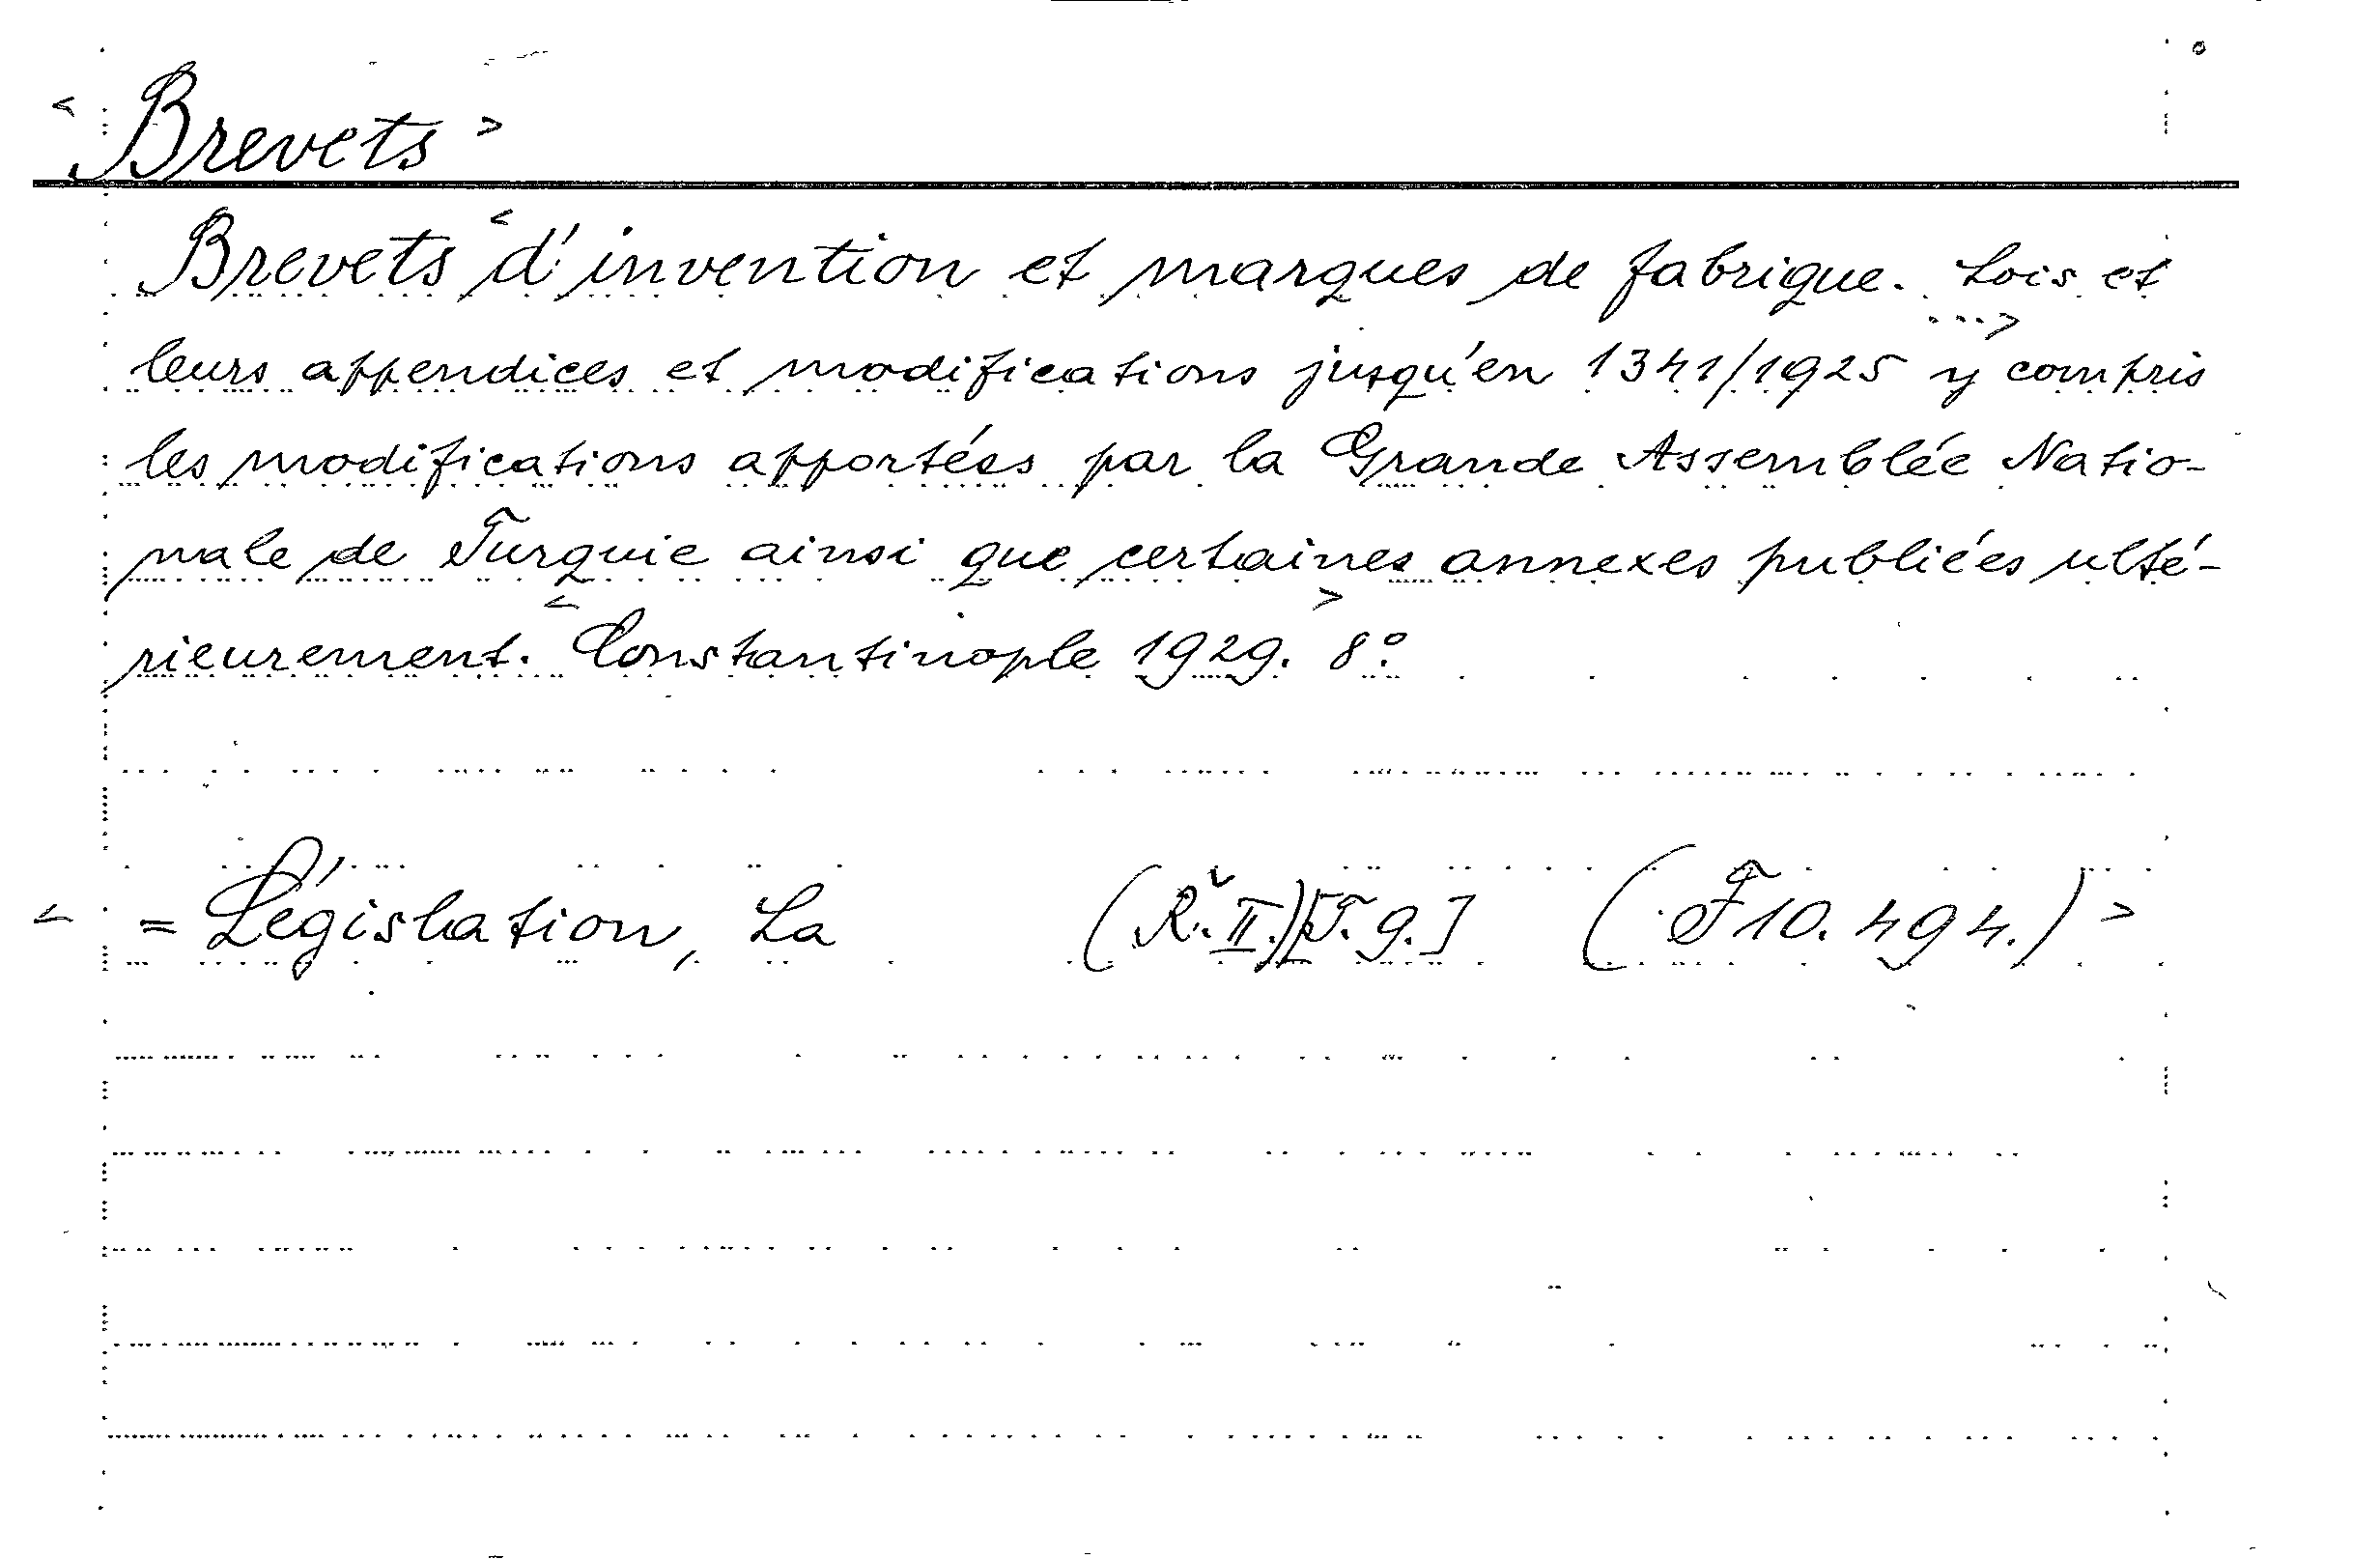 < Brevets >
Brevets < d'invention et marques de fabrique. Lois et
leurs appendices et modifications jusqu'en 1341/1925 ...> y compris
les modifications apportées par la Grande Assemblée Natio-
nale de Turquie ainsi que certaines annexes publiées ulté-
rieurement. < Constantinople 1929. > 8°.
< = Législation, La (R. II.) [T. 9.] (F 10. 494.) >